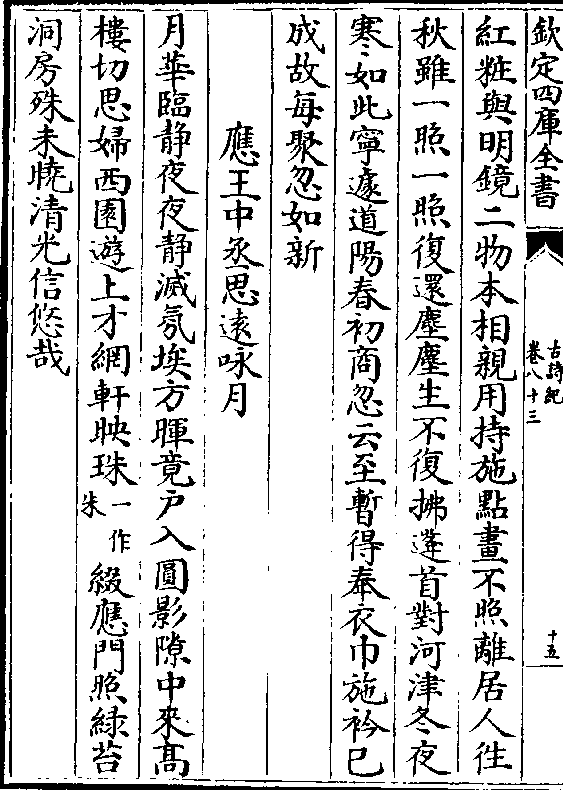 欽定四庫全書
古詩紀
卷八十三
十五
紅粧與明鏡二物本相親用持施點畫不照離居人往
秋雖一照一照復還塵塵生不復拂蓬首對河津冬夜
寒如此寧遽道陽春初商忽云至暫得奉衣巾施衿已
成故每聚忽如新
應王中丞思遠咏月
月華臨静夜夜静滅氛埃方暉竟户入圓影隙中來髙
樓切思婦西園遊上才網軒映珠一作朱綴應門照緑苔
洞房殊未曉清光信悠哉